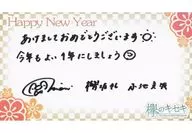 Happy New Year
あけましておめでとうございます
今年もよい1年にしましょう
欅坂46
欅のキセキ